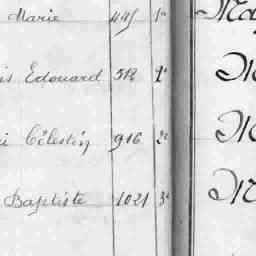 Marie 445 1e
is Edouard 518 1e
i Célestin 916 2e
Baptiste 1021 3e